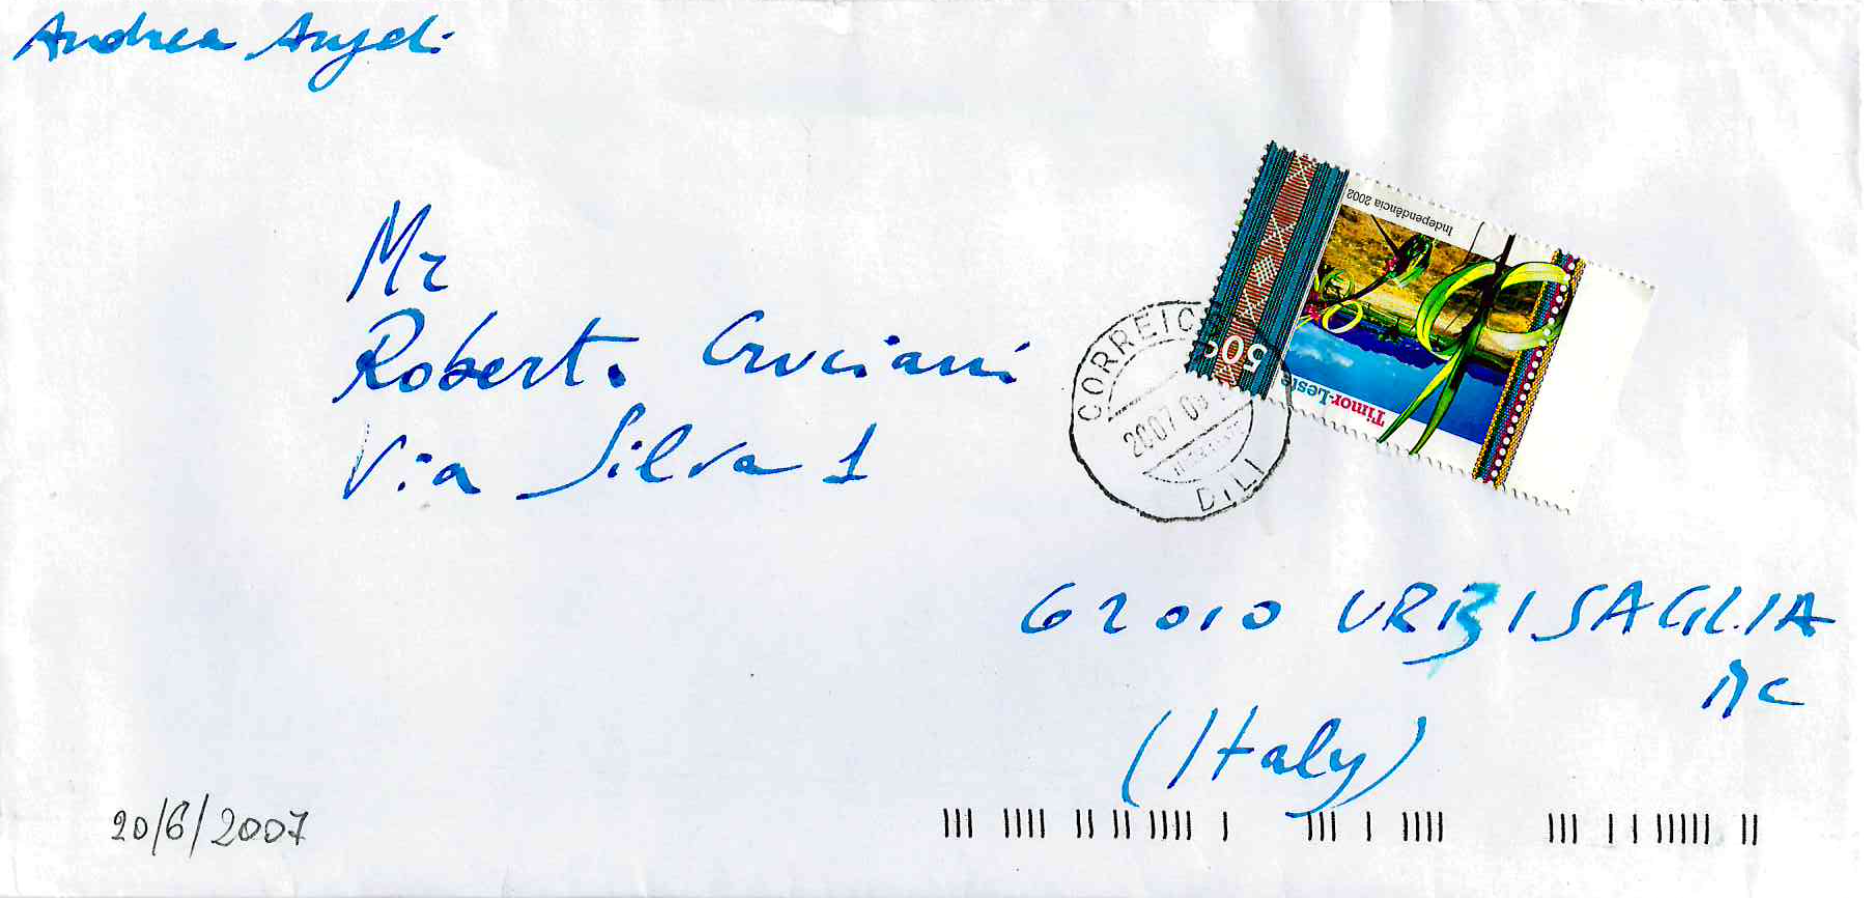 Andrea Angeli
Mr
Roberto Cruciani
Via Silva 1
Independência 2002
50c
Timor-Leste
CORREIOS
2007 0
DILI
62010 URBISAGLIA
MC
(Italy)
20/6/2007